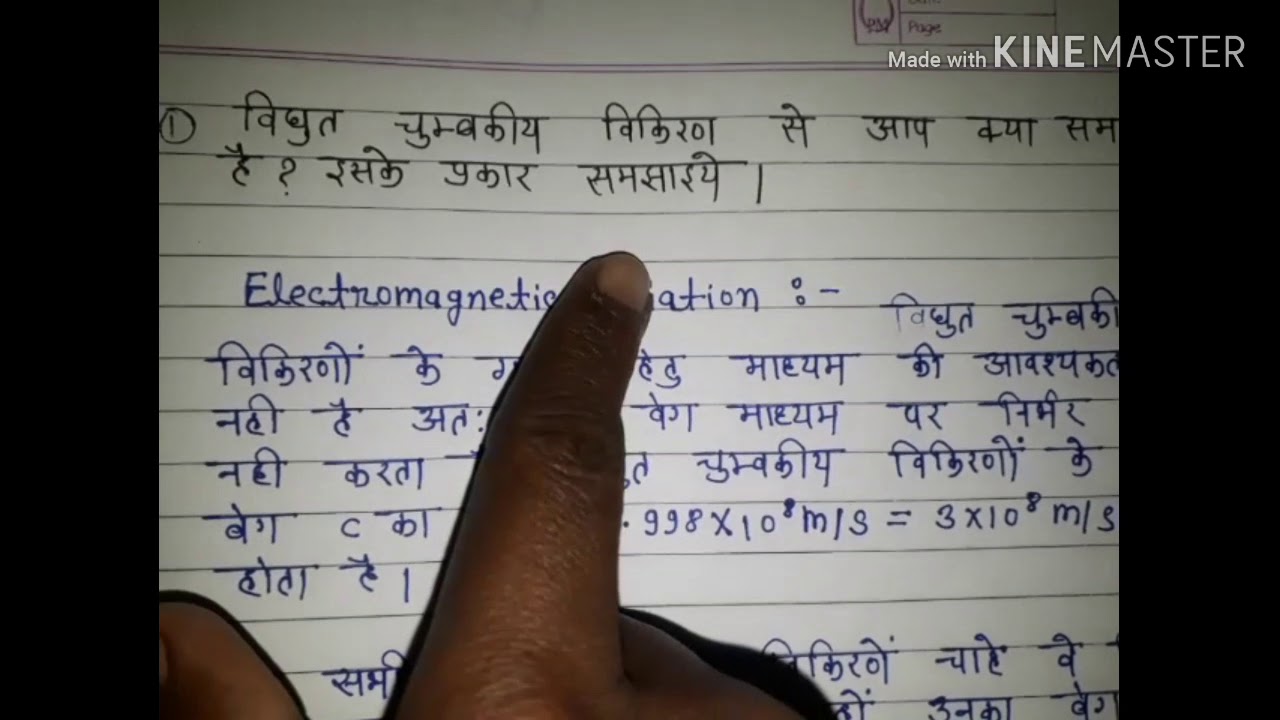 Page
Made with KINEMASTER
① विधुत चुम्बकीय विकिरण से आप क्या सम
है ? इसके प्रकार समझाइये ।
Electromagnetic iation :-
विधुत चुम्बकी
विकिरणों के हेतु माध्यम की आवश्यकत
नही है अतः वेग माध्यम पर निर्भर
नही करता चुम्बकीय विकिरणों के
वेग C का .998×10⁸ m/s = 3×10⁸ m/s
होता है ।
समी विकिरणें चाहे वे
उनका वेग